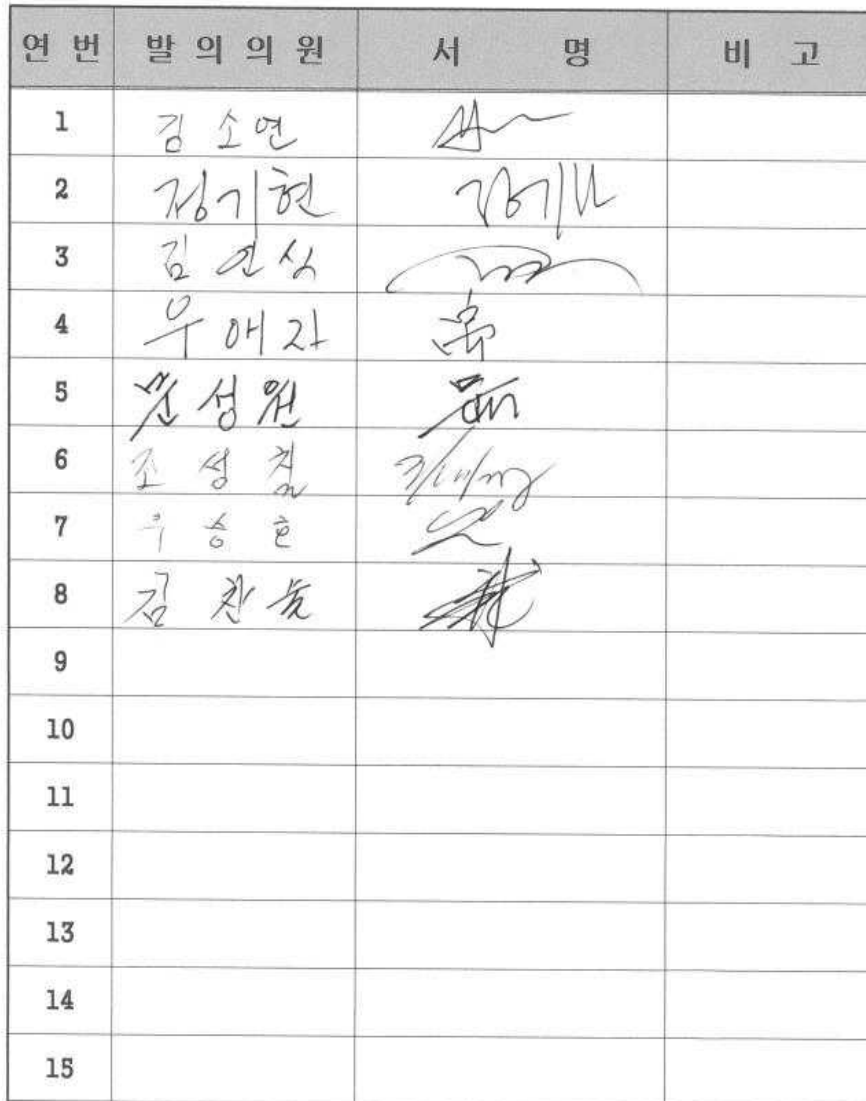 연 번 발 의 의 원 서 명 비 고
1 김 소 연
2 정기현
3 김 연 식
4 우 애 자
5 문 성 원
6 조 성 칠
7 우 승 호
8 김 찬 술
9
10
11
12
13
14
15